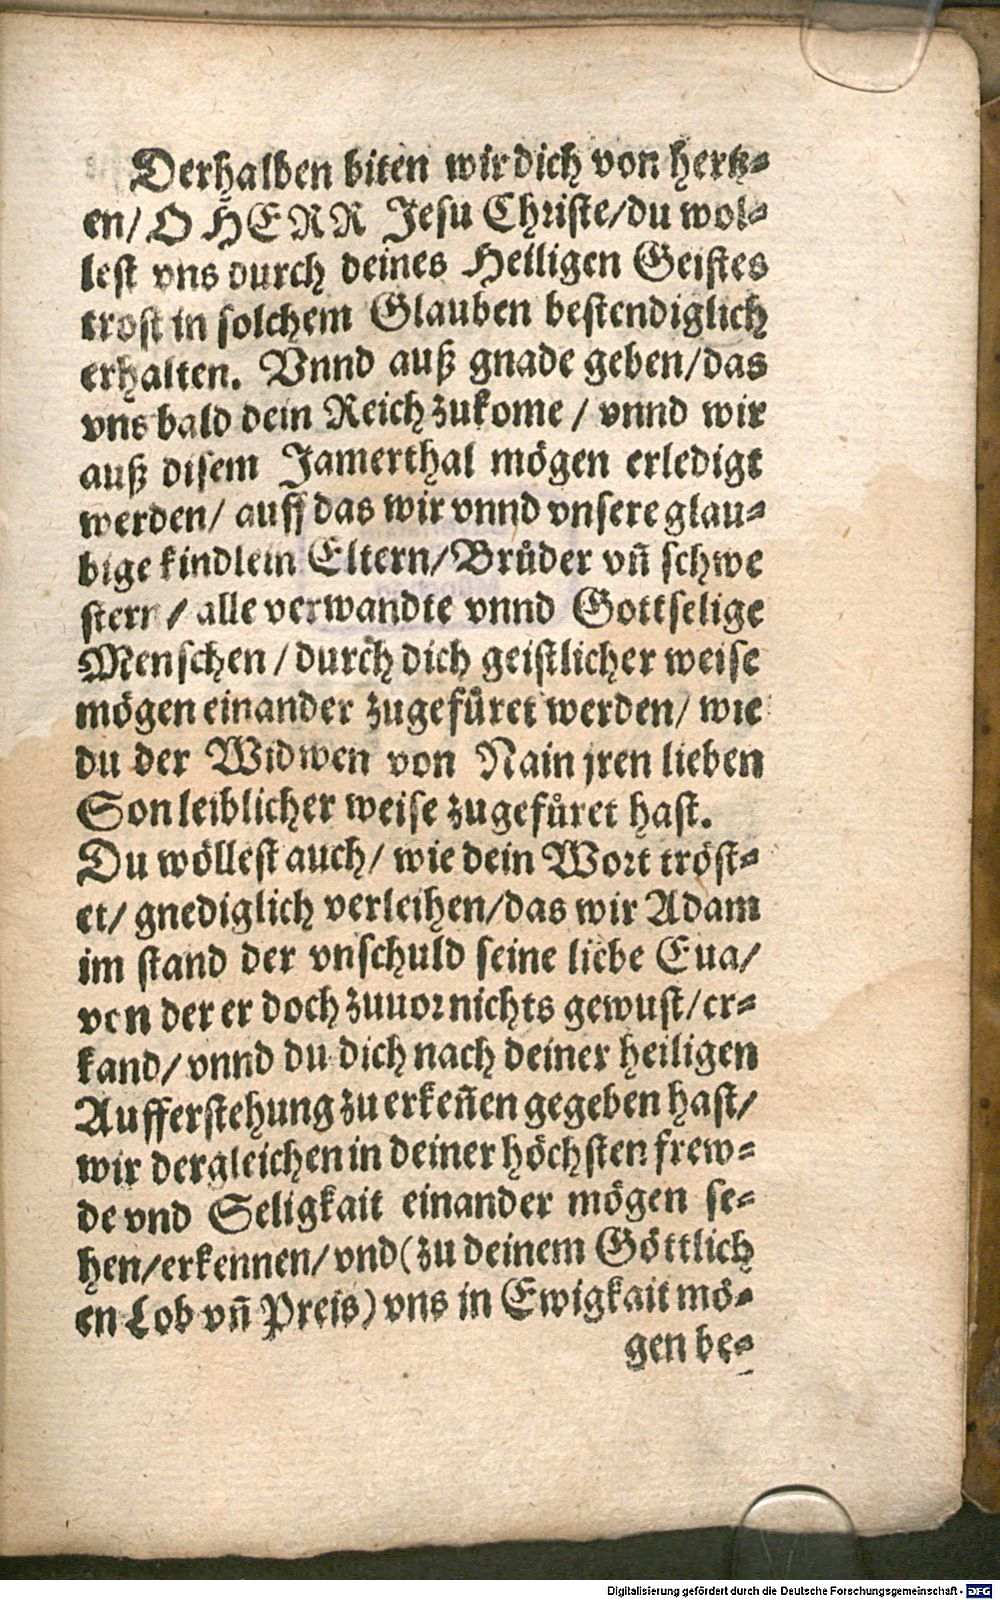 Derhalben biten wir dich von hertz-
en/ O HERR Jesu Christe/du wol-
lest vns durch deines Heiligen Geistes
trost in solchem Glauben bestendiglich
erhalten. Vnnd auß gnade geben/das
vns bald dein Reich zukome / vnnd wir
auß disem Jamerthal mögen erledigt
werden/ auff das wir vnnd vnsere glau-
bige kindlein Eltern/Brůder vñ schwe
stern / alle verwandte vnnd Gottselige
Menschen / durch dich geistlicher weise
mögen einander zugefůret werden/ wie
du der Widwen von Nain jren lieben
Son leiblicher weise zugefůret hast.
Du wöllest auch/ wie dein Wort tröst-
et/ gnediglich verleihen/das wir Adam
im stand der vnschuld seine liebe Eua/
von der er doch zuuor nichts gewust/er-
kand/ vnnd du dich nach deiner heiligen
Aufferstehung zu erkeñen gegeben hast/
wir dergleichen in deiner höchsten frew-
de vnd Seligkait einander mögen se-
hen/erkennen/ vnd (zu deinem Göttlich
en Lob vñ Preis) vns in Ewigkait mö-
gen be-
Digitalisierung gefördert durch die Deutsche Forschungsgemeinschaft - DFG